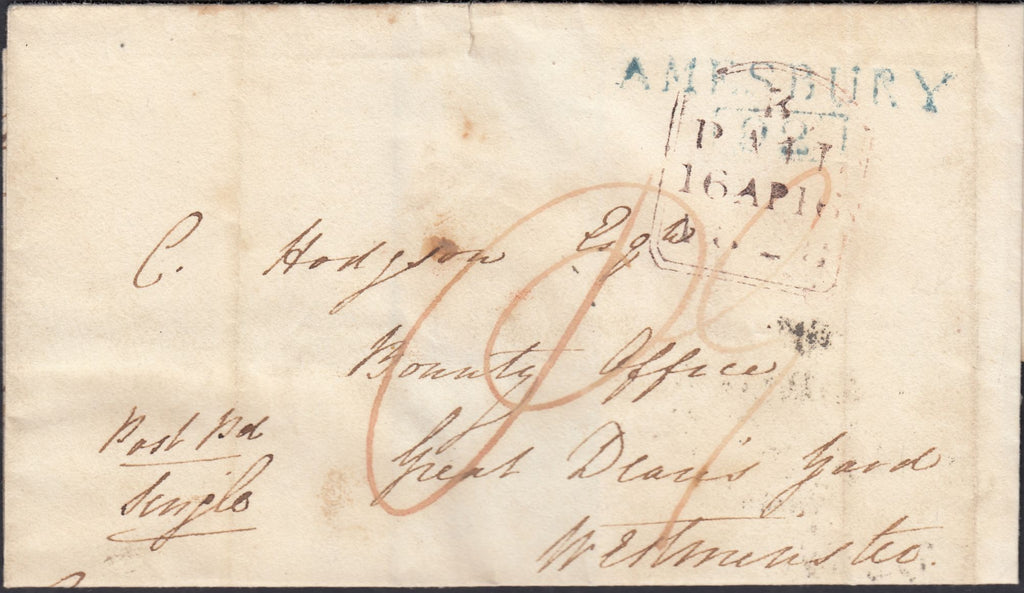 AMESBURY
R
PAID
16 AP 16
C. Hodgson Esqre
Bounty Office
Great Dean's Yard
Westminster.
Post Pd
Single